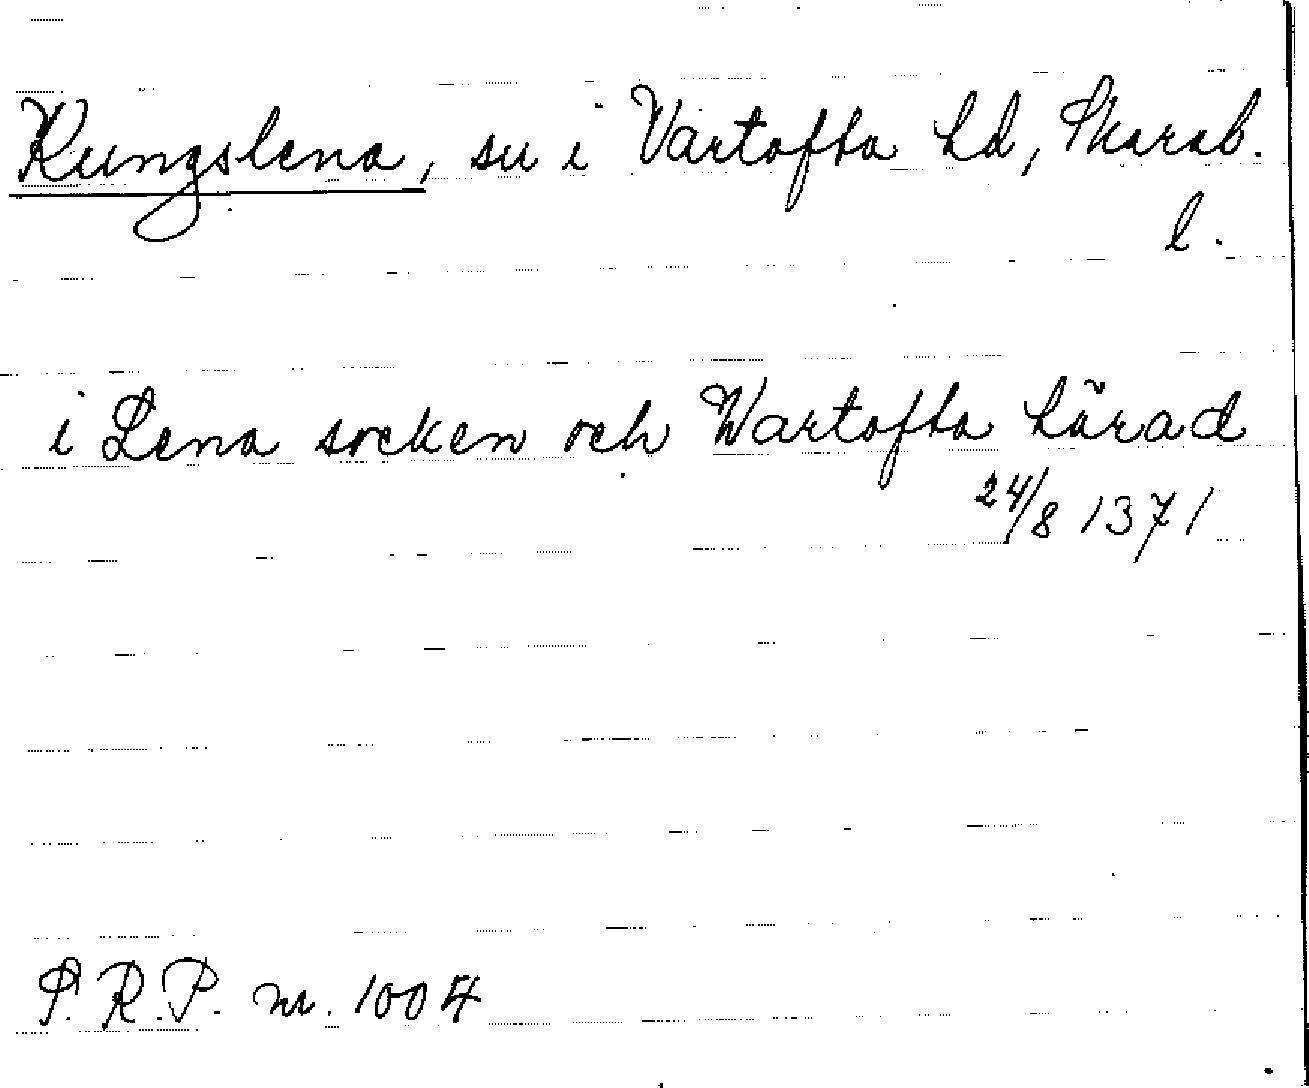 Kungslena, sn i Vartofta hd, Skarab.
l.
i Lena socken och Wartofta härad
24/8 1371
S.R.P. nr. 1004